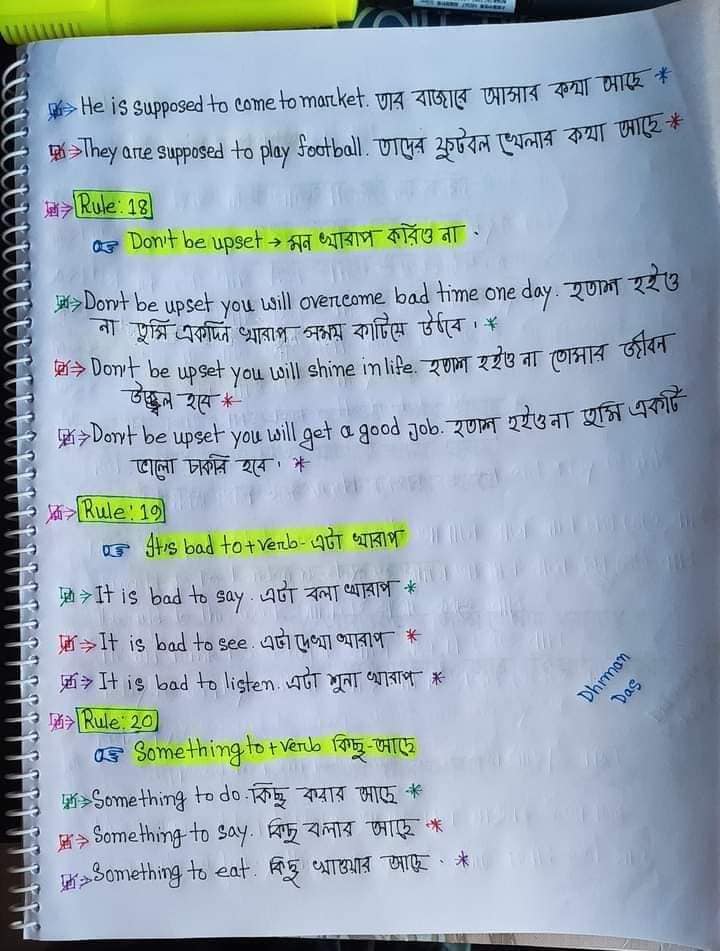 He is supposed to come to market. তার বাজারে আসার কথা আছে *
They are supposed to play football. তাদের ফুটবল খেলার কথা আছে *
Rule: 18
Don't be upset → মন খারাপ করিও না .
Don't be upset you will overcome bad time one day. হতাশ হইও
না তুমি একদিন খারাপ সময় কাটিয়ে উঠবে । *
Don't be upset you will shine in life. হতাশ হইও না তোমার জীবন
উজ্জ্বল হবে *
Don't be upset you will get a good job. হতাশ হইও না তুমি একটি
ভালো চাকরি হবে । *
Rule: 19
It's bad to + verb - এটা খারাপ
It is bad to say. এটা বলা খারাপ *
It is bad to see. এটা দেখা খারাপ *
It is bad to listen. এটা শুনা খারাপ *
Dhiman
Das
Rule: 20
Something to + verb কিছু - আছে
Something to do. কিছু করার আছে *
Something to say. কিছু বলার আছে *
Something to eat. কিছু খাওয়ার আছে . *